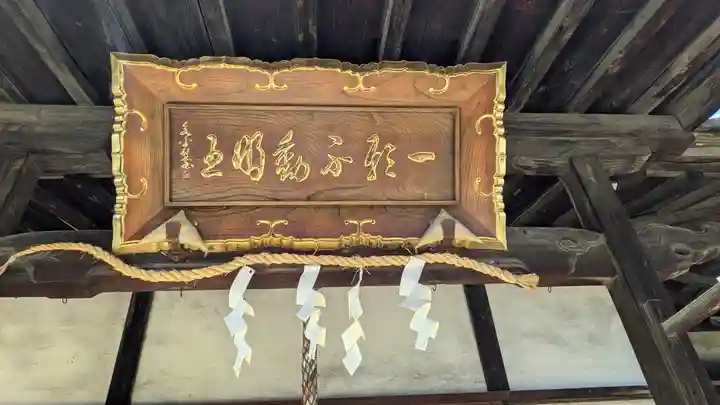 一願不動明王